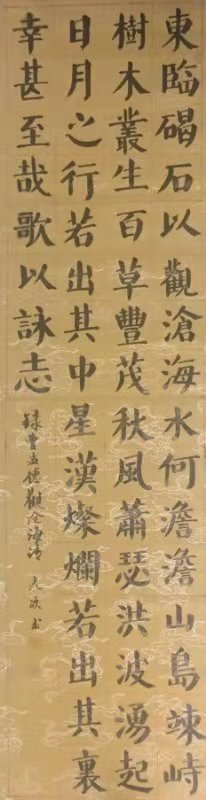 東臨碣石以觀滄海水何澹澹山島竦峙
樹木叢生百草豐茂秋風蕭瑟洪波湧起
日月之行若出其中星漢燦爛若出其裏
幸甚至哉歌以詠志
錄曹孟德觀滄海詩
書